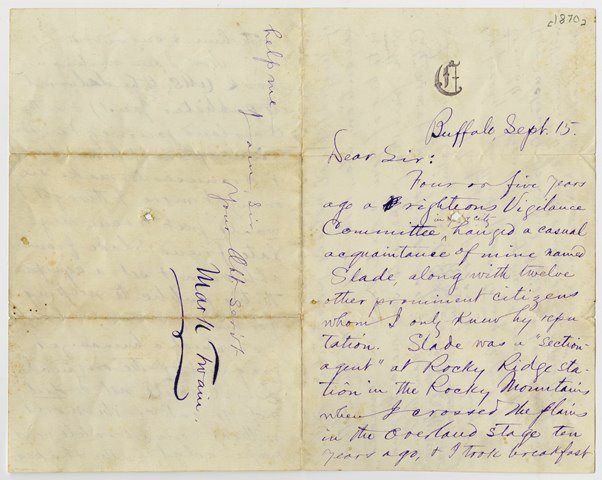 [1870?]
C
Buffalo, Sept. 15.
Dear Sir:
Four or five years
ago a righteous Vigilance
Committee in your city hanged a casual
acquaintance of mine named
Slade, along with twelve
other prominent citizens
whom I only knew by repu-
tation. Slade was a "section-
agent" at Rocky Ridge sta-
tion in the Rocky Mountains
when I crossed the plains
in the Overland stage ten
years ago, & I took breakfast
help me
I am, Sir,
Your Obt Servt
Mark Twain.